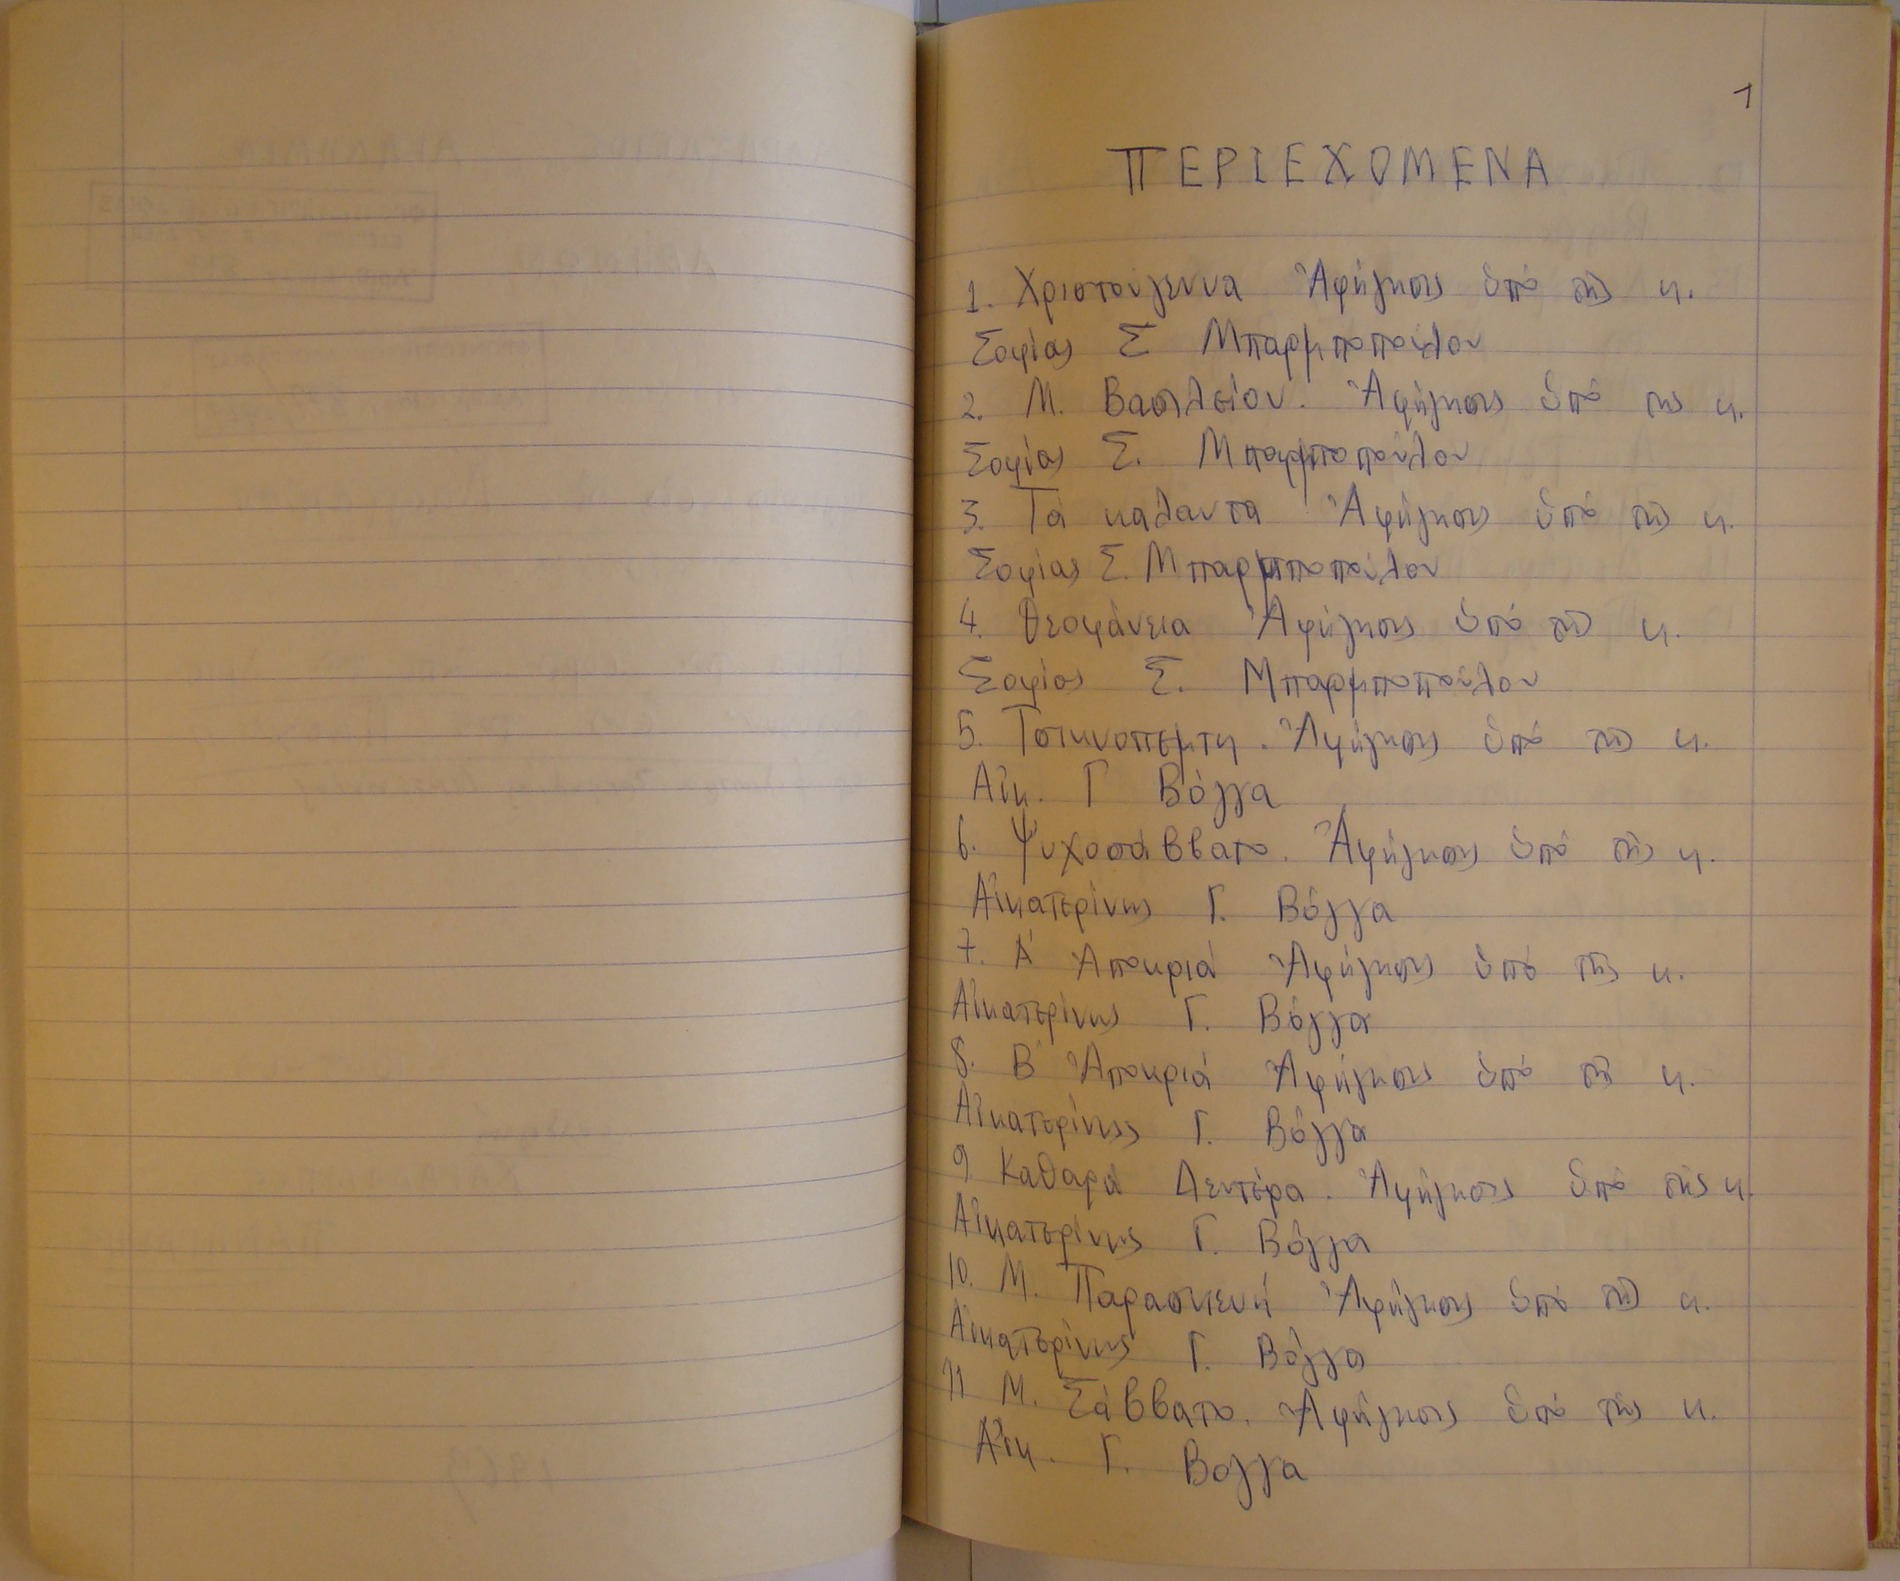 1
ΠΕΡΙΕΧΟΜΕΝΑ
1. Χριστούγεννα Ἀφήγησις ὑπό τῆς κ.
Σοφίας Σ Μπαρμποπούλου
2. Μ. Βασιλείου. Ἀφήγησις ὑπό της κ.
Σοφίας Σ. Μπαρμποπούλου
3. Τά καλαντα Ἀφήγησις ὑπό τῆς κ.
Σοφίας Σ. Μπαρμποπούλου
4. Θεοφάνεια Ἀφήγησις ὑπό τῆς κ.
Σοφίας Σ. Μπαρμποπούλου
5. Τσικνοπεμτη. Ἀφήγησις ὑπό τῆς κ.
Αἰκ. Γ Βόγγα
6. Ψυχοσάββατο. Ἀφήγησις ὑπό τῆς κ.
Αἰκατερίνης Γ. Βόγγα
7. Α' Ἀποκριά Ἀφήγησις ὑπό τῆς κ.
Αἰκατερίνης Γ. Βόγγα
8. Β' Ἀποκριά Ἀφήγησις ὑπό τῆς κ.
Αἰκατερίνης Γ. Βόγγα
9 Καθαρά Δευτέρα. Ἀφήγησις ὑπό τῆς κ.
Αἰκατερίνης Γ. Βόγγα
10. Μ. Παρασκευή Ἀφήγησις ὑπό τῆς κ.
Αἰκατερίνης Γ. Βόγγα
11 Μ. Σάββατο. Ἀφήγησις ὑπό τῆς κ.
Αἰκ. Γ. Βογγα